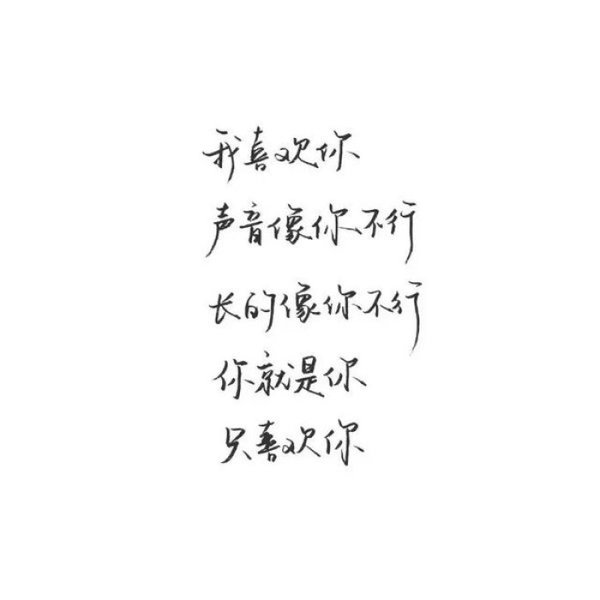 我喜欢你
声音像你不行
长的像你不行
你就是你
只喜欢你